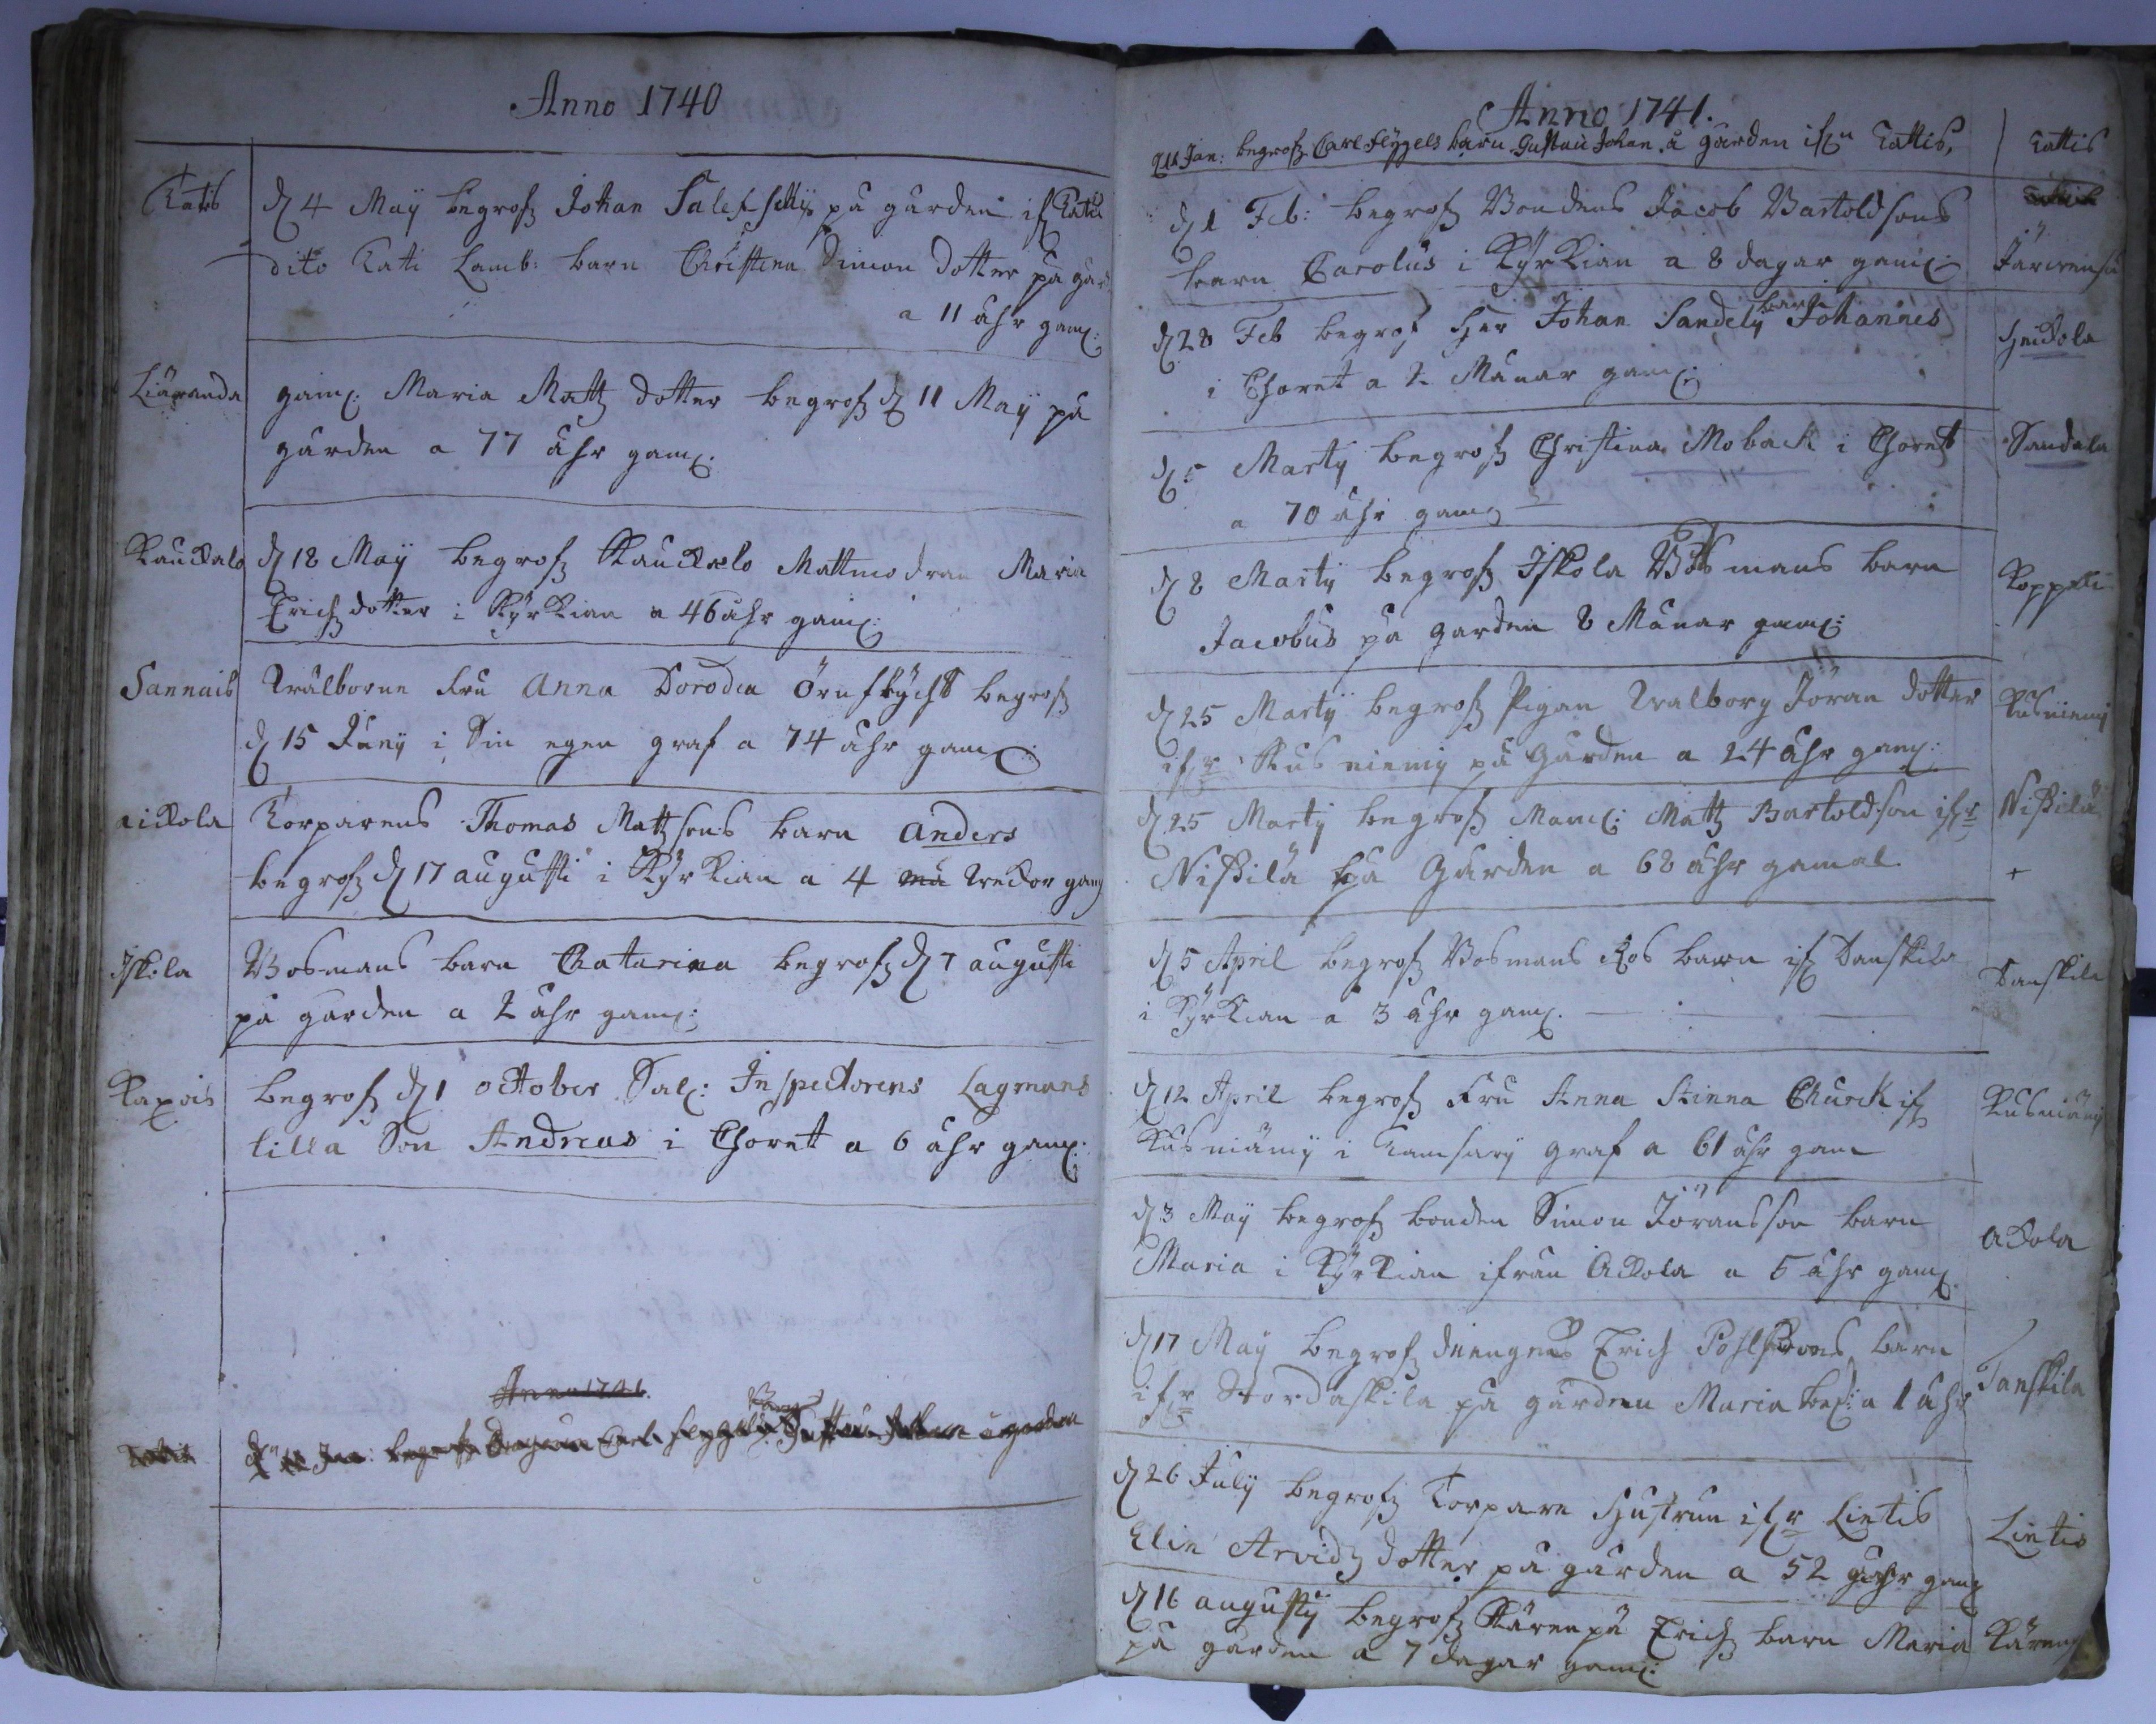 Anno 1740
Katis
d 4 Maÿ begrofz Johan på gården if Katis
dito Kati Lamb: barn Christina Simon dotter på gård
a 11 åhr gam:
Liäranda
gaml: Maria Mattz dotter begrofz d 11 Maÿ på
gården a 77 åhr gaml.
Kauckalo
d 18 Maÿ begrofz Kauckalo Mattmodran Maria
Erichz dotter i Kÿrkian a 46 åhr gaml:
Sannais
Wälborne Fru Anna Dorodea begrofz
d 15 Junÿ i Sin egen graf a 74 åhr gaml:
Torparens Thomas Mattzsons barn Anders
begrofz d 17 augusti i Kÿrkian a 4 må weckor gaml
Iskola
Bosmans barn Catarina begrofz d 7 augusti
på gården a 2 åhr gaml:
Kaxois
begrofz d 1 october Sal: Inspectorens Lagmans
lilla Son Andreas i Choret a 6 åhr gaml:
Anno 1741.
Katis
Jan: begrofz Dragoun Carl Barn Gustau Johan å garden
Anno 1741.
Jan: begrofz Carl Flÿgels barn Gustau Johan å gården ifrn Kattis,
Kattis
d 1 Feb: begrofz Bondens Jacob Bartoldsons
barn Carolus i Kÿrkian a 8 dagar gaml:
d 28 Feb begrof Her Johan Sandelÿ barn Johannes
i Choret a 2 Månar gaml:
d 5 Martÿ begrofz Christina Moback i Choret
a 70 åhr gaml
Sandala
d 8 Martÿ begrofz Iskola Bosmans barn
Jacobus på garden 8 Månar gaml:
Koppeli
d 25 Martÿ begrofz Pigan Walborg Jöran dotter
ifr Kusniemÿ på Gården a 24 åhr gaml:
Kusniemÿ
d 25 Martÿ begrofz Mattz Bartoldson ifr
Nissilä på Gården a 68 åhr gamal.
Nissilä
+
d 5 April begrof Bosmans barn if Danskila
i Kÿrkian a 3 åhr gaml.
Danskila
d 12 April begrof Fru Anna Stinna Churck if
Kusniämÿ i Ramsaÿ graf a 61 åhr gam
Kusniämÿ
d 3 Maÿ begrof bonden Simon Jöransson barn
Maria i Kÿrkian ifrån Ackola a 5 åhr gaml.
Ackola
d 17 Maÿ begrof Erich Pohlsons barn
ifr på gården Maria a 1 åhr
Tanskila
d 26 Julÿ begrofz Torpare Hustrun ifr Lintis
Elin Arvidz dotter på gården a 52 åhr gaml
Lintis
d 16 augustÿ begrofz Kärenpä Erichz barn Maria
på gården a 7 dagar gaml: